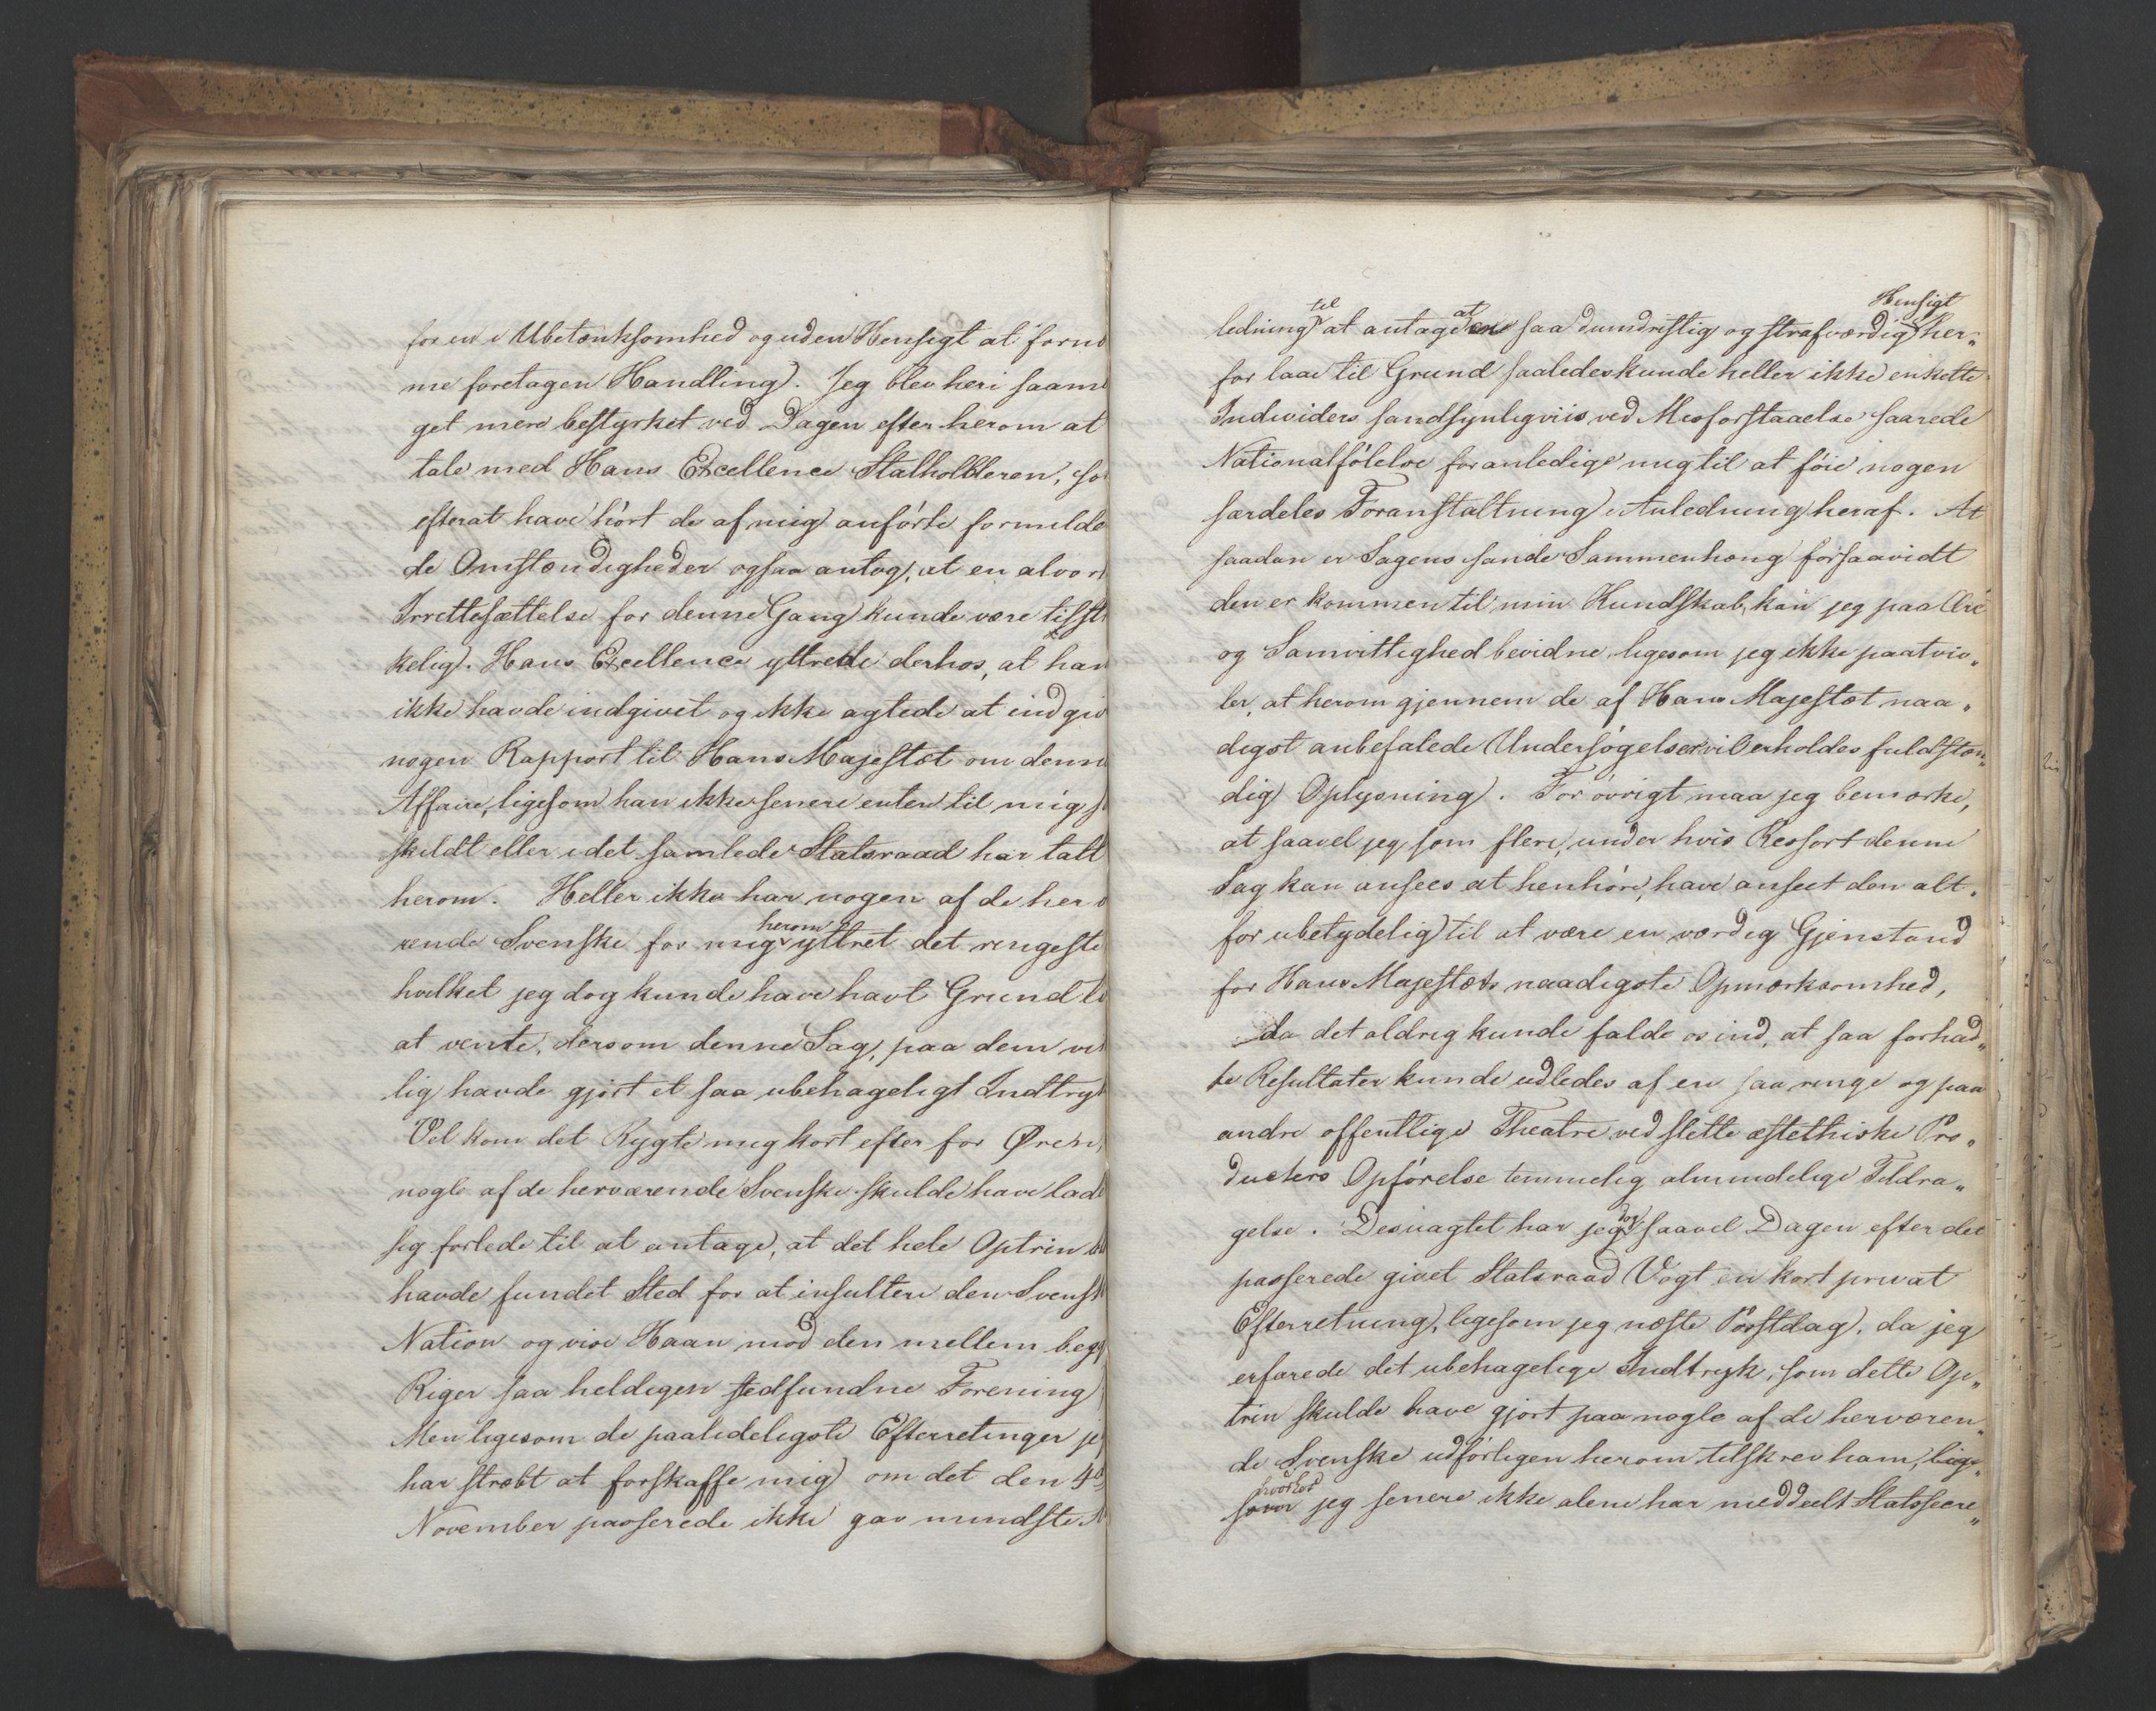 for en i Ubetænksomhed og uden Hensigt at forn
me foretagen Handling. Jeg blev heri saam
get mere bestyrket ved Dagen efter herom at
tale med Hans Excellence Statholderen, so
efterat have hört de af mig anförte formilde
de Omstændigheder ogsaa antog, at en alvor
Irettesættelse for denne Gang kunde være tilst
kelig. Hans Excellence yttrede derhos, at han
ikke havde indgivet og ikke agtede at indgiv
nogen Rapport til Hans Majestæt om denn
Affaire, ligesom han ikke senere enten til mig s
skildt eller i det samlede Statsraad har talt
herom. Heller ikke har nogen af de her
rende Svenske for mig herom yttret det ringeste
hvilket jeg dog kunde have havt Grund ti
at vente, dersom denne Sag, paa dem vir
lig havde gjort et saa ubehageligt Indtryk
Vel kom det Rygte mig kort efter for Øren,
nogle af de herværende Svenske skulde have lad
sig forlede til at antage, at det hele Optrin
havde fundet Sted for at insultere den Svensk
Nation og vise Haan mod den mellem beg
Riger saa heldigen stedfundne Forening
Men ligesom de paalideligste Efterretninger je
har stræbt at forskaffe mig om det den 4de
November passerede ikke gav mindste
ledning til at antage at en saa dumdristig og strafværdig Hensigt her„
for laae til Grund saaledes kunde heller ikke enkelte
Individers sandsynligviis ved Misforstaaelse saarede
Nationalfölelse foranledige mig til at föie nogen
særdeles Foranstaltning i Anledning heraf. At
saadan er Sagens sande Sammenhæng forsaavidt
den er kommen til min Kundskab, kan jeg paa Ære
og Samvittighed bevidne, ligesom jeg ikke paatviv„
ler, at herom gjennem de af Hans Majestæt naa„
digst anbefalede Undersögelser vil erholdes fuldstæn„
dig Oplysning. For övrigt maa jeg bemærke,
at saavel jeg som flere, under hvis Ressort denne
Sag kan ansees at henhöre, have anseet den alt„
for ubetydelig til at være en værdig Gjenstand
for Hans Majestæts naadigste Opmærksomhed,
da det aldrig kunde falde os ind, at saa forhad„
te Resultater kunde udledes af en saa ringe og paa
andre offentlige Theatre ved slette æstethiske Pro„
ducters Opförelse temmelig almindelige Tildra„
gelse. Desuagtet har jeg dog saavel Dagen efter det
passerede givet Statsraad Vogt en kort privat
Efterretning, ligesom jeg næste Postdag, da jeg
erfarede det ubehagelige Indtryk, som dette Op„
trin skulde have gjort paa nogle af de herværen„
de Svenske udförligen herom tilskrev ham, lige„
som hvorhos jeg senere ikke alene har meddeelt Statssecre„